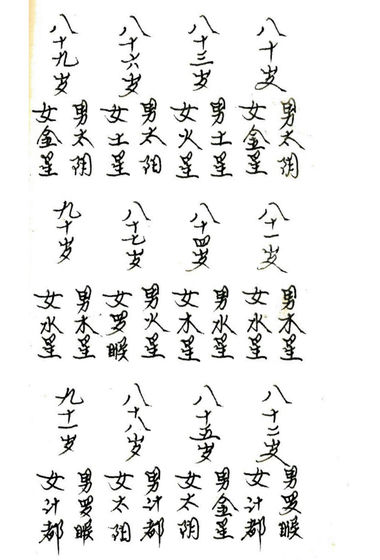 八十岁
男太阴
女金星
八十一岁
男木星
女水星
八十二岁
男罗睺
女计都
八十三岁
男土星
女火星
八十四岁
男水星
女木星
八十五岁
男金星
女太阴
八十六岁
男太阳
女土星
八十七岁
男火星
女罗睺
八十八岁
男计都
女太阳
八十九岁
男太阴
女金星
九十岁
男木星
女水星
九十一岁
男罗睺
女计都